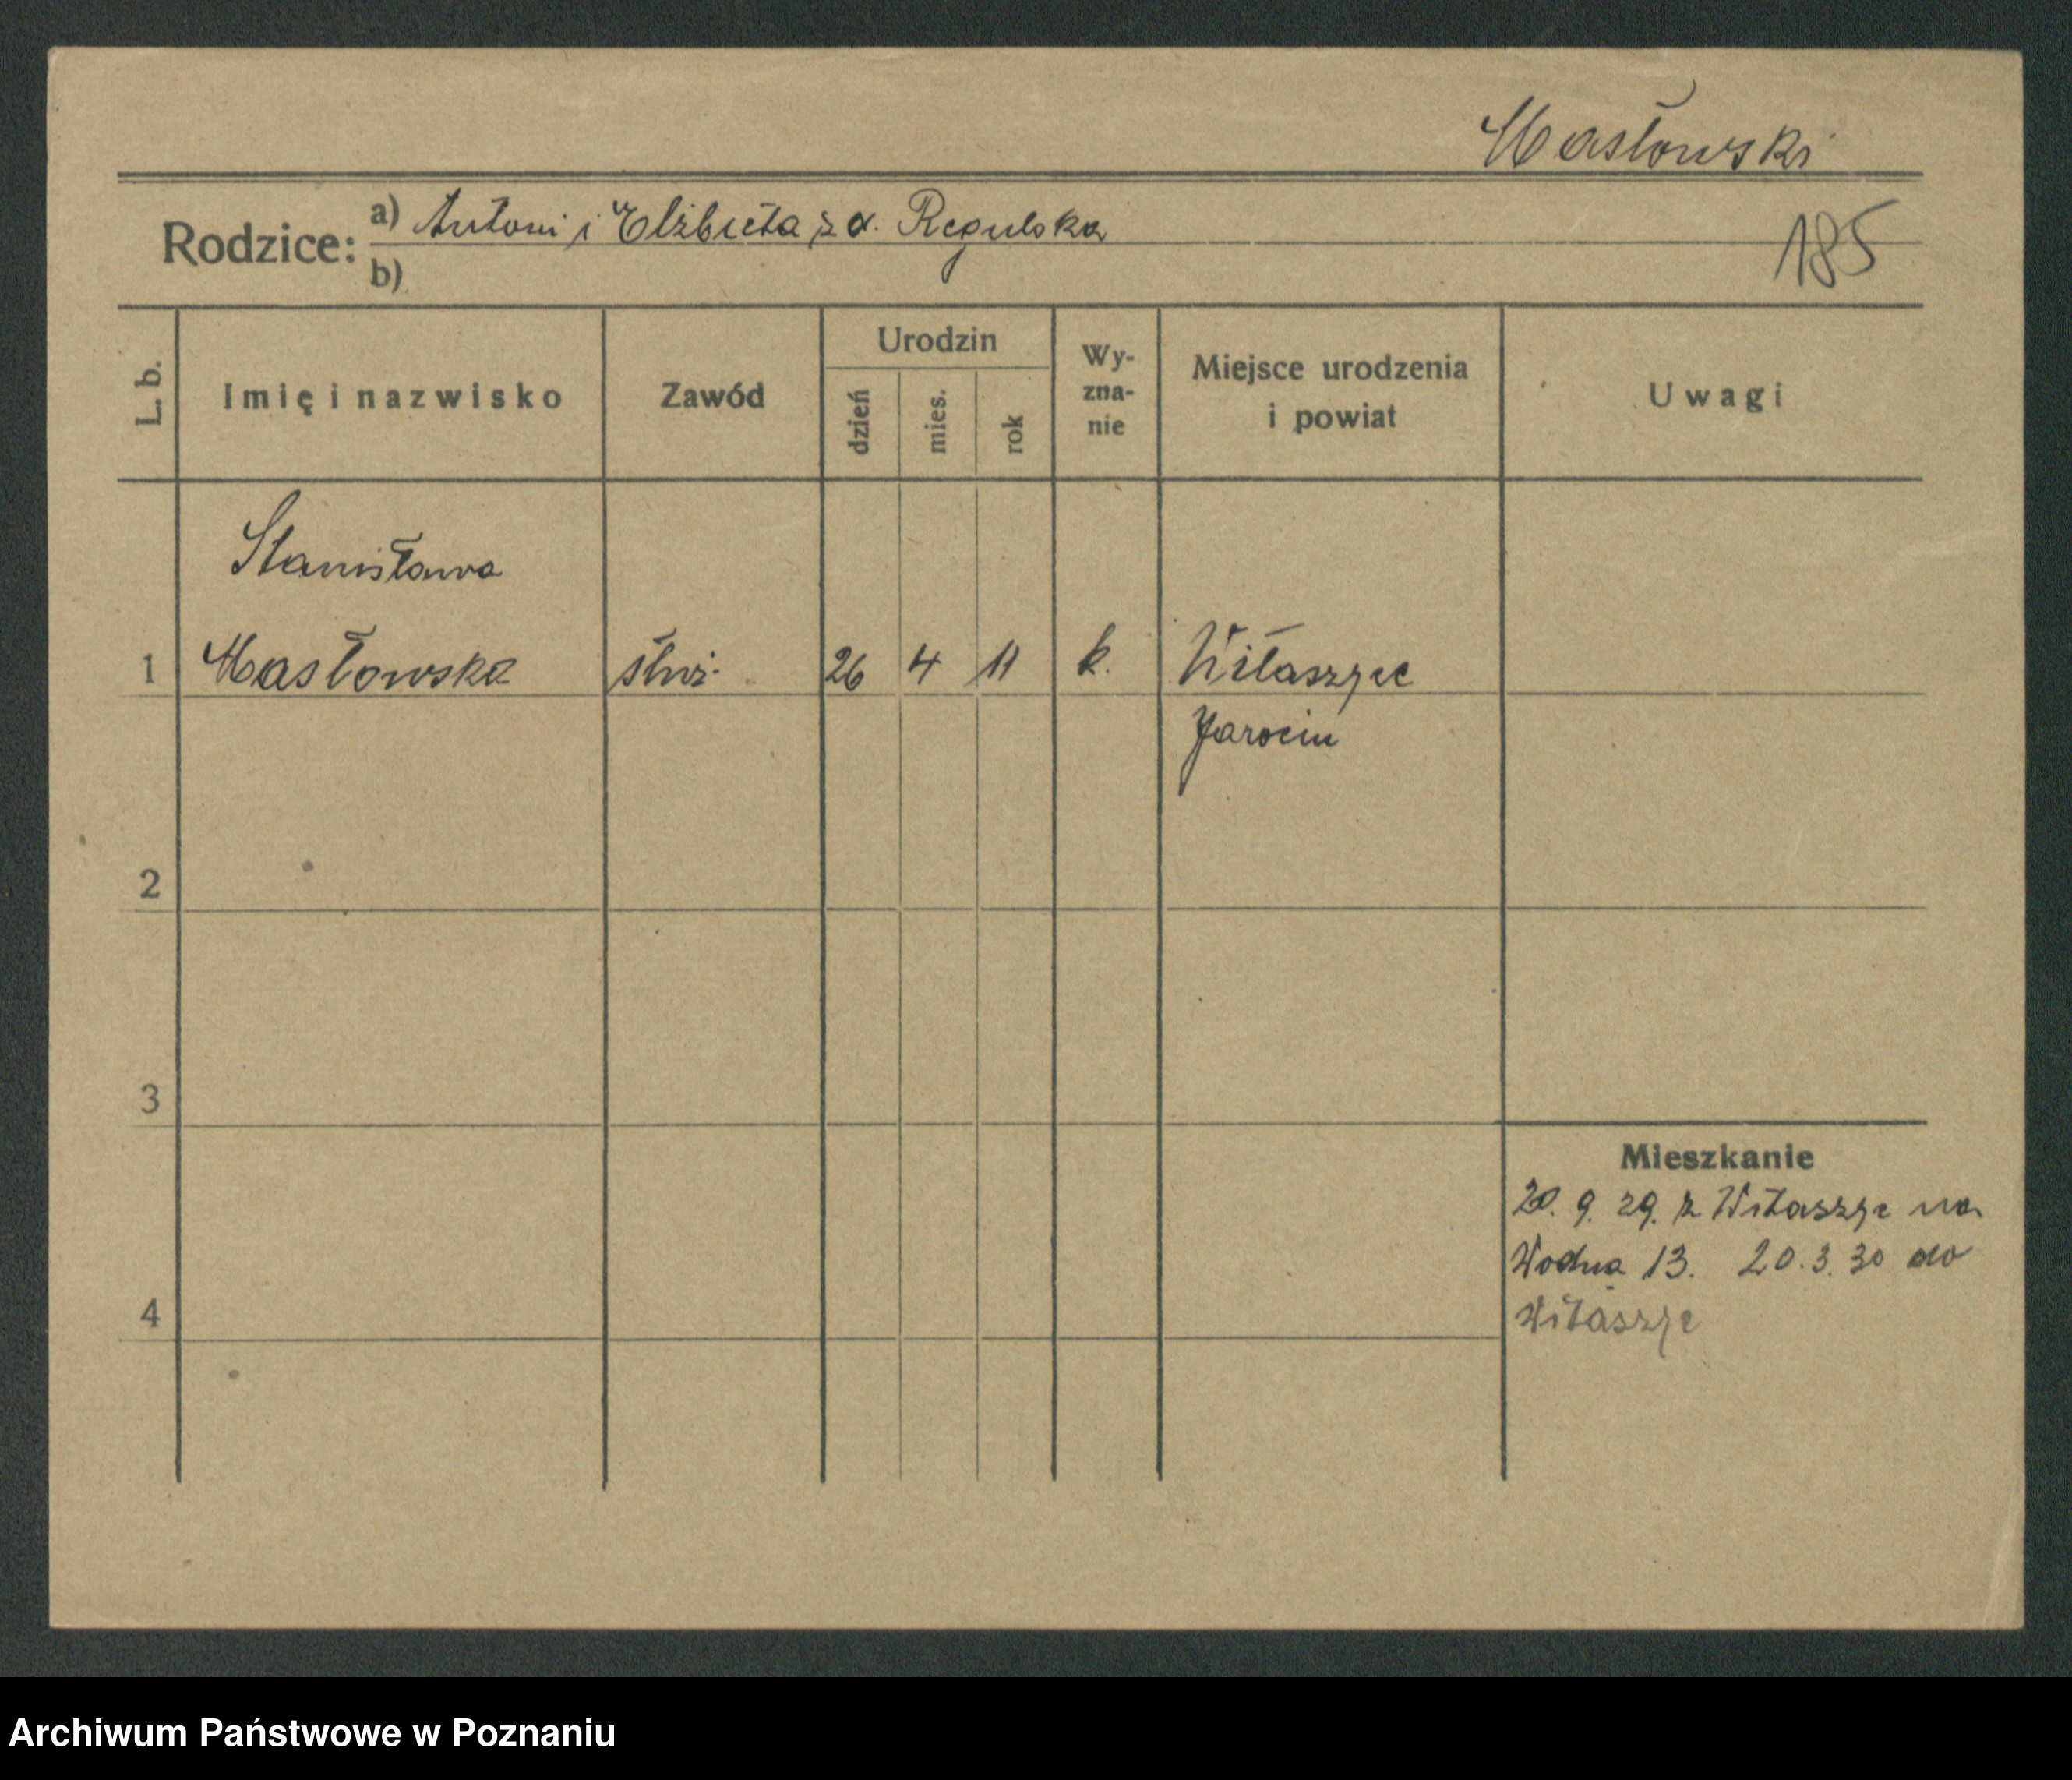 Masłowski
Rodzice: a) Antoni i Elżbieta z d. Regulska
185
b)
L. b. Imię i nazwisko Zawód Urodzin dzień mies. rok Wy-zna-nie Miejsce urodzenia i powiat Uwagi
Stanisława
1 Masłowska służ. 26 4 11 k. Witaszyce
Jarocin
2
3
Mieszkanie
20. 9. 29. z Witaszyc na
Wodna 13. 20. 3. 30 do
4 Witaszyc
Archiwum Państwowe w Poznaniu